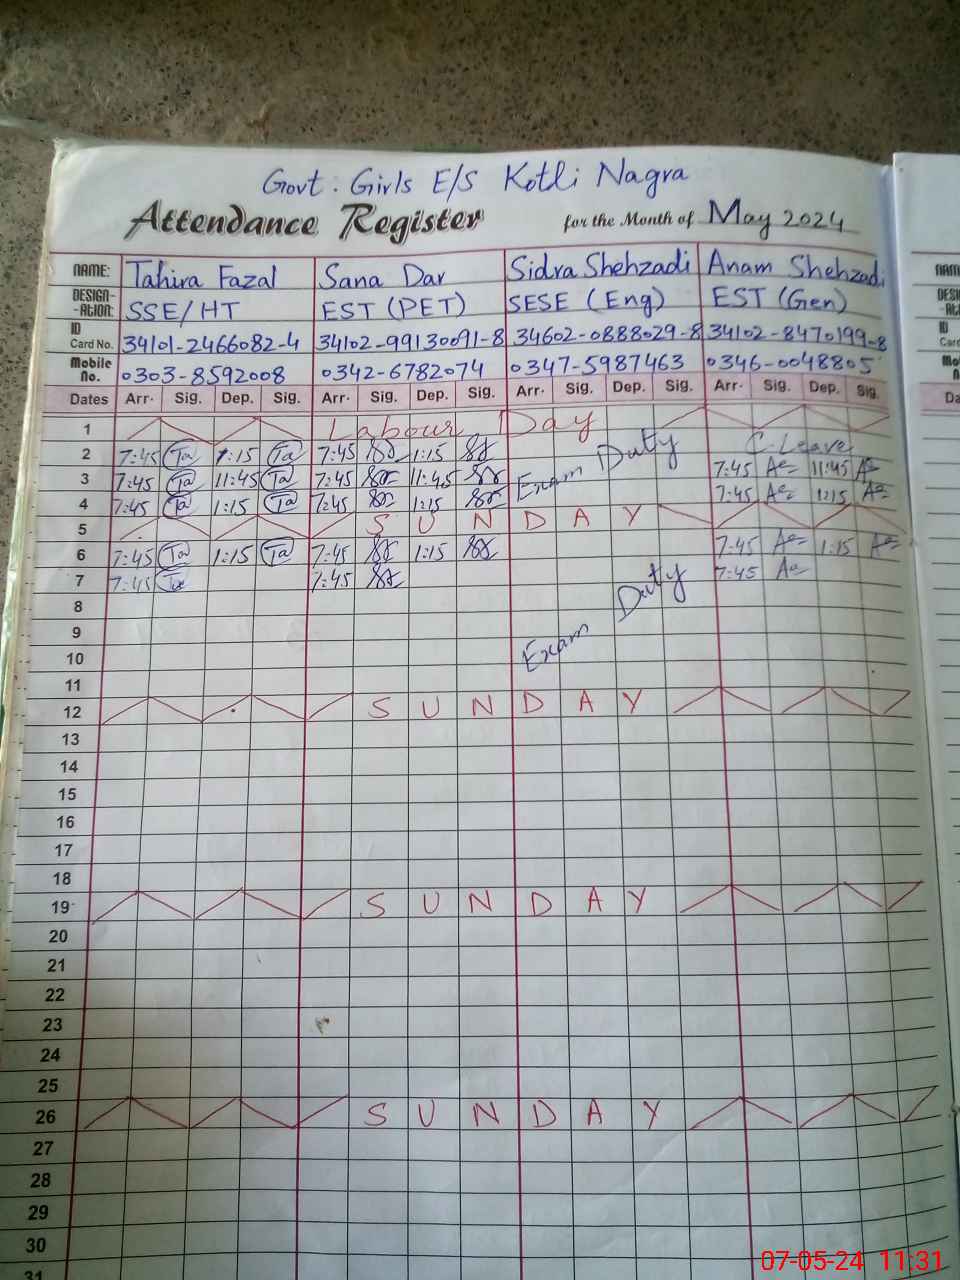 Govt: Girls E/S Kotli Nagra
Attendance Register for the Month of May 2024
NAME: Tahira Fazal Sana Dar Sidra Shehzadi Anam Shehzadi NAM
DESIGN-ATION: SSE/HT EST (PET) SESE (Eng) EST (Gen)
ID Card No. 34101-2466082-4 34102-99130091-8 34602-0888029-8 34102-8470199-8
Mobile No. 0303-8592008 0342-6782074 0347-5987463 0346-0048805
Dates Arr. Sig. Dep. Sig. Arr. Sig. Dep. Sig. Arr. Sig. Dep. Sig. Arr. Sig. Dep. Sig. Da
1 Labour Day
2 7:45 Ta 1:15 Ta 7:45 1:15 Exam Duty C-Leave
3 7:45 Ta 11:45 Ta 7:45 11:45 7:45 11:45
4 7:45 Ta 1:15 Ta 7:45 1:15 7:45 1:15
5 SUNDAY
6 7:45 Ta 1:15 Ta 7:45 1:15 7:45 1:15
7 7:45 Ta 7:45 Exam Duty 7:45
8
9
10
11
12 SUNDAY
13
14
15
16
17
18
19 SUNDAY
20
21
22
23
24
25
26 SUNDAY
27
28
29
30
31
07-05-24 11:31